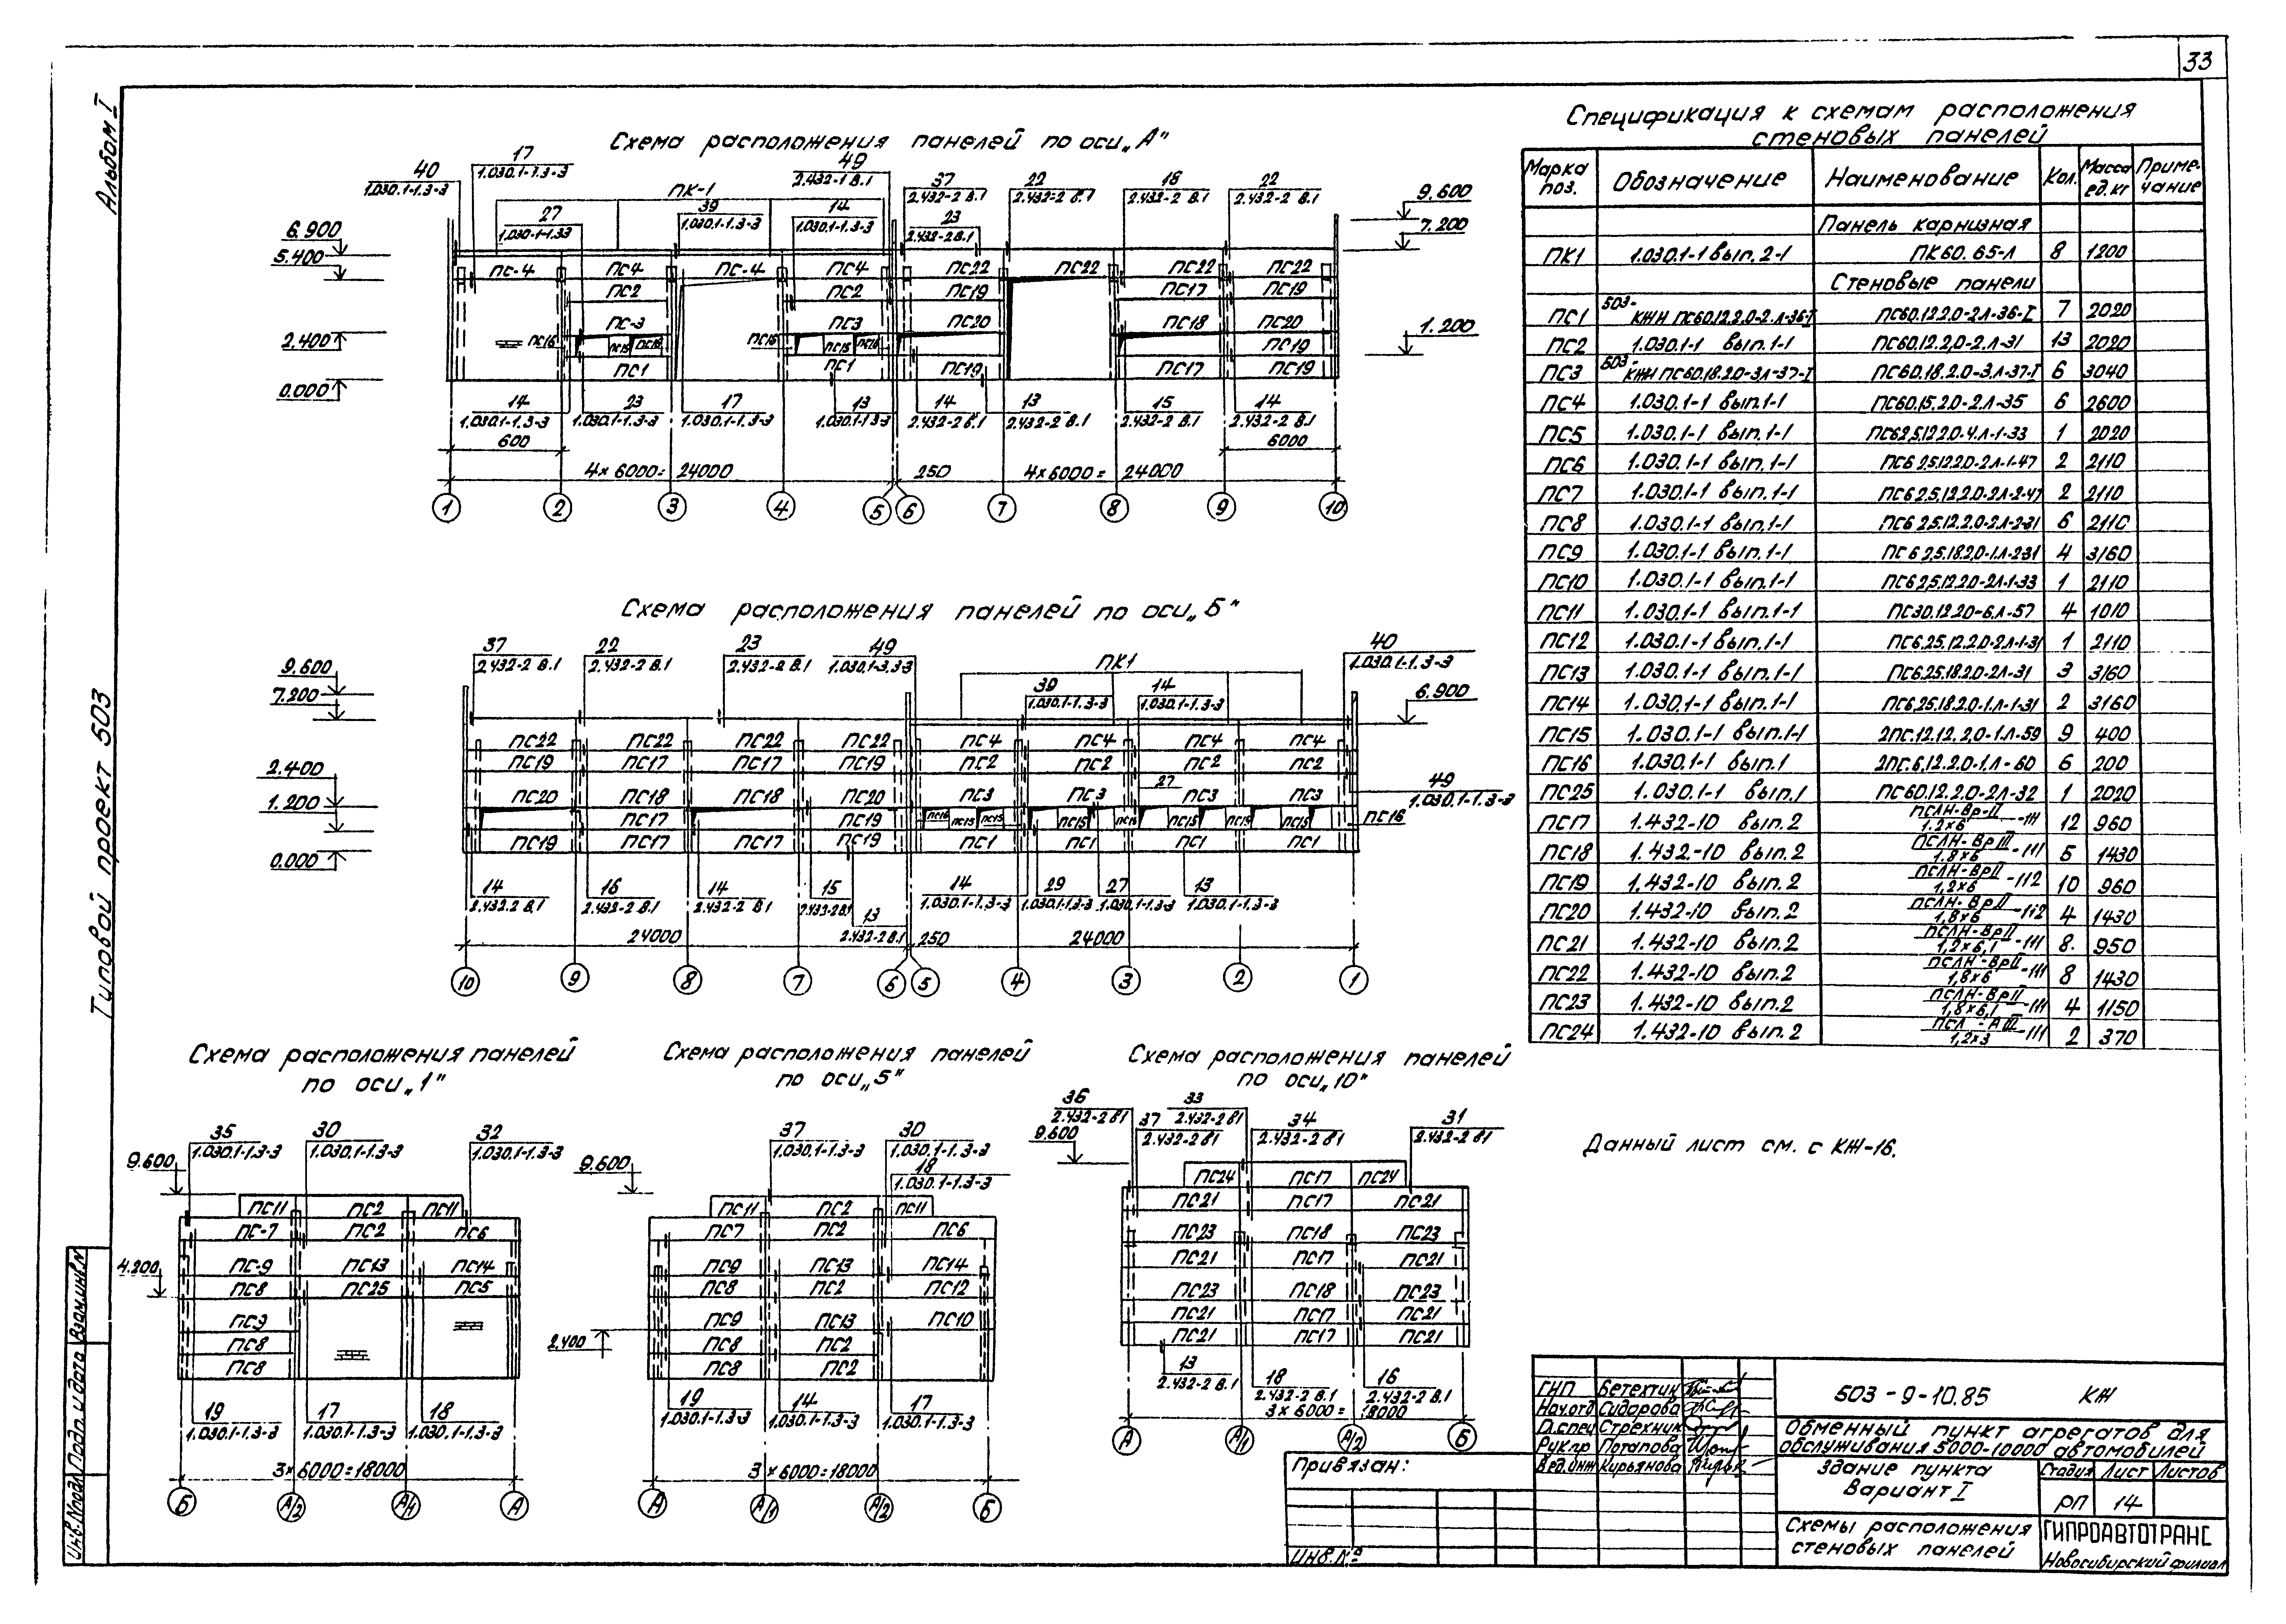 33
Альбом I
Типовой проект 503
Схема расположения панелей по оси „А"
40
1.030.1-1.3-3
17
1.030.1-1.3-3
ПК-1
27
39
1.030.1-1.3-3
14
1.030.1-1.3-3
49
2.432-1 В.1
37
2.432-2 В.1
23
2.432-2 В.1
22
2.432-2 В.1
2.432-2 В.1
22
2.432-2 В.1
9.600
7.200
6.900
5.400
2.400
0.000
1.200
ПС-4 ПС4 ПС-4 ПС4 ПС22 ПС22 ПС22 ПС22
ПС2 ПС2 ПС19 ПС17 ПС19
ПС-3 ПС3 ПС20 ПС18 ПС20
ПС16 ПС15 ПС16 ПС15 ПС16 ПС19
ПС1 ПС1 ПС19 ПС17 ПС19
14
1.030.1-1.3-3
23
1.030.1-1.3-3
17
1.030.1-1.3-3
13
1.030.1-1 3-3
14
2.432-2 В.1
13
2.432-2 В.1
15
2.432-2 В.1
14
2.432-2 В.1
600
6000
4×6000= 24000
250
4×6000= 24000
1 2 3 4 5 6 7 8 9 10
Схема расположения панелей по оси „Б"
37
2.432-2 В.1
22
2.432-2 В.1
23
2.432-2 В.1
49
1.030.1-3.3-3
ПК1
39
1.030.1-1.3-3
14
1.030.1-1.3-3
40
1.030.1-1.3-3
9.600
7.200
6.900
2.400
1.200
0.000
ПС22 ПС22 ПС22 ПС22 ПС4 ПС4 ПС4 ПС4
ПС19 ПС17 ПС17 ПС19 ПС2 ПС2 ПС2 ПС2
27
ПС20 ПС18 ПС18 ПС20 ПС3 ПС3 ПС3 ПС3
ПС17 ПС19 ПС16 ПС15 ПС15 ПС15 ПС16 ПС15 ПС16 ПС15
ПС19 ПС17 ПС17 ПС19 ПС1 ПС1 ПС1 ПС1
49
1.030.1-1.3-3
ПС16
14
2.432-2 В.1
16
2.432-2 В.1
14
2.432-2 В.1
15
2.432-2 В.1
13
2.432-2 В.1
14
1.030.1-1.3-3
29
1.030.1-1.3-3
27
1.030.1-1.3-3
13
1.030.1-1.3-3
24000
250
24000
10 9 8 7 6 5 4 3 2 1
Схема расположения панелей
по оси „1"
35
1.030.1-1.3-3
30
1.030.1-1.3-3
32
1.030.1-1.3-3
9.600
4.200
ПС11 ПС2 ПС11
ПС-7 ПС2 ПС6
ПС-9 ПС13 ПС14
ПС8 ПС25 ПС5
ПС9
ПС8
ПС8
19
1.030.1-1.3-3
17
1.030.1-1.3-3
18
1.030.1-1.3-3
3×6000=18000
Б А/2 А/1 А
Схема расположения панелей
по оси „5"
37
1.030.1-1.3-3
30
1.030.1-1.3-3
18
1.030.1-1.3-3
9.600
2.400
ПС11 ПС2 ПС11
ПС7 ПС2 ПС6
ПС9 ПС13 ПС14
ПС8 ПС2 ПС12
ПС9 ПС13 ПС10
ПС8 ПС2
ПС8 ПС2
19
1.030.1-1.3-3
14
1.030.1-1.3-3
17
1.030.1-1.3-3
3×6000=18000
А А/1 А/2 Б
Схема расположения панелей
по оси „10"
36
2.432-2 В1
37
2.432-2 В1
33
2.432-2 В1
34
2.432-2 В1
31
2.432-2 В1
9.600
ПС24 ПС17 ПС24
ПС21 ПС17 ПС21
ПС23 ПС18 ПС23
ПС21 ПС17 ПС21
ПС23 ПС18 ПС23
ПС21 ПС17 ПС21
ПС21 ПС17 ПС21
13
2.432-2 В.1
18
2.432-2 В.1
16
2.432-2 В.1
3×6000= 18000
А А/1 А/2 Б
Спецификация к схемам расположения
стеновых панелей
Марка поз. Обозначение Наименование Кол. Масса ед.кг Приме-чание
Панель карнизная
ПК1 1.030.1-1 вып. 2-1 ПК60.65-Л 8 1200
Стеновые панели
ПС1 503-КЖИ ПС60.12.2.0-2.Л-36-I ПС60.12.2.0-2Л-36-I 7 2020
ПС2 1.030.1-1 вып.1-1 ПС60.12.2,0-2.Л-31 13 2020
ПС3 503-КЖИ ПС60.18.2.0-3Л-37-I ПС60.18.2.0-3.Л-37-I 6 3040
ПС4 1.030.1-1 вып.1-1 ПС60.15.2.0-2.Л-35 6 2600
ПС5 1.030.1-1 вып.1-1 ПС62.5.12.2.0-4.Л-1-33 1 2020
ПС6 1.030.1-1 вып.1-1 ПС6 2.5.12.2.0-2Л-1-47 2 2110
ПС7 1.030.1-1 вып.1-1 ПС6 2.5.12.2.0-2Л-2-47 2 2110
ПС8 1.030.1-1 вып.1-1 ПС6 2.5.12.2.0-2.Л-2-31 6 2110
ПС9 1.030.1-1 вып.1-1 ПС6 2.5.18.2.0-1.Л-2-31 4 3160
ПС10 1.030.1-1 вып.1-1 ПС6 2.5.12.2.0-2Л-1-33 1 2110
ПС11 1.030.1-1 вып.1-1 ПС30.12.20-6.Л-57 4 1010
ПС12 1.030.1-1 вып.1-1 ПС6.25.12.2.0-2Л-1-31 1 2110
ПС13 1.030.1-1 вып.1-1 ПС6.25.18.2.0-2Л-31 3 3160
ПС14 1.030.1-1 вып.1-1 ПС6.25.18.2.0-1.Л-1-31 2 3160
ПС15 1.030.1-1 вып.1-1 2ПС.12.12.2,0-1.Л-59 9 400
ПС16 1.030.1-1 вып.1 2ПС.6.12.2.0-1.Л-60 6 200
ПС25 1.030.1-1 вып.1 ПС60.12.2.0-2Л-32 1 2020
ПС17 1.432-10 вып.2 ПСЛН-Вр-II/1.2×6-111 12 960
ПС18 1.432-10 вып.2 ПСЛН-ВрIII/1.8×6-111 5 1430
ПС19 1.432-10 вып.2 ПСЛН-ВрII/1,2×6-112 10 960
ПС20 1.432-10 вып.2 ПСЛН-ВрII/1,8×6-112 4 1430
ПС21 1.432-10 вып.2 ПСЛН-ВрII/1,2×6,1-111 8. 950
ПС22 1.432-10 вып.2 ПСЛН-ВрII/1,8×6-111 8 1430
ПС23 1.432-10 вып.2 ПСЛН-ВрII/1,8×6,1-111 4 1150
ПС24 1.432-10 вып.2 ПСЛ-АIII/1,2×3-111 2 370
Данный лист см. с КЖ-16.
ГИП Бетехтин
Нач.отд Сидорова
Гл.спец Стрехнин
Рук.гр Потапова
Вед.инж Кирьянова
503-9-10.85 КЖ
Обменный пункт агрегатов для
обслуживания 5000-10000 автомобилей
Здание пункта
Вариант I
Стадия Лист Листов
РП 14
Схемы расположения
стеновых панелей
ГИПРОАВТОТРАНС
Новосибирский филиал
Привязан:
Инв.№
Инв.№подл Подп. и дата Взам.инв.N